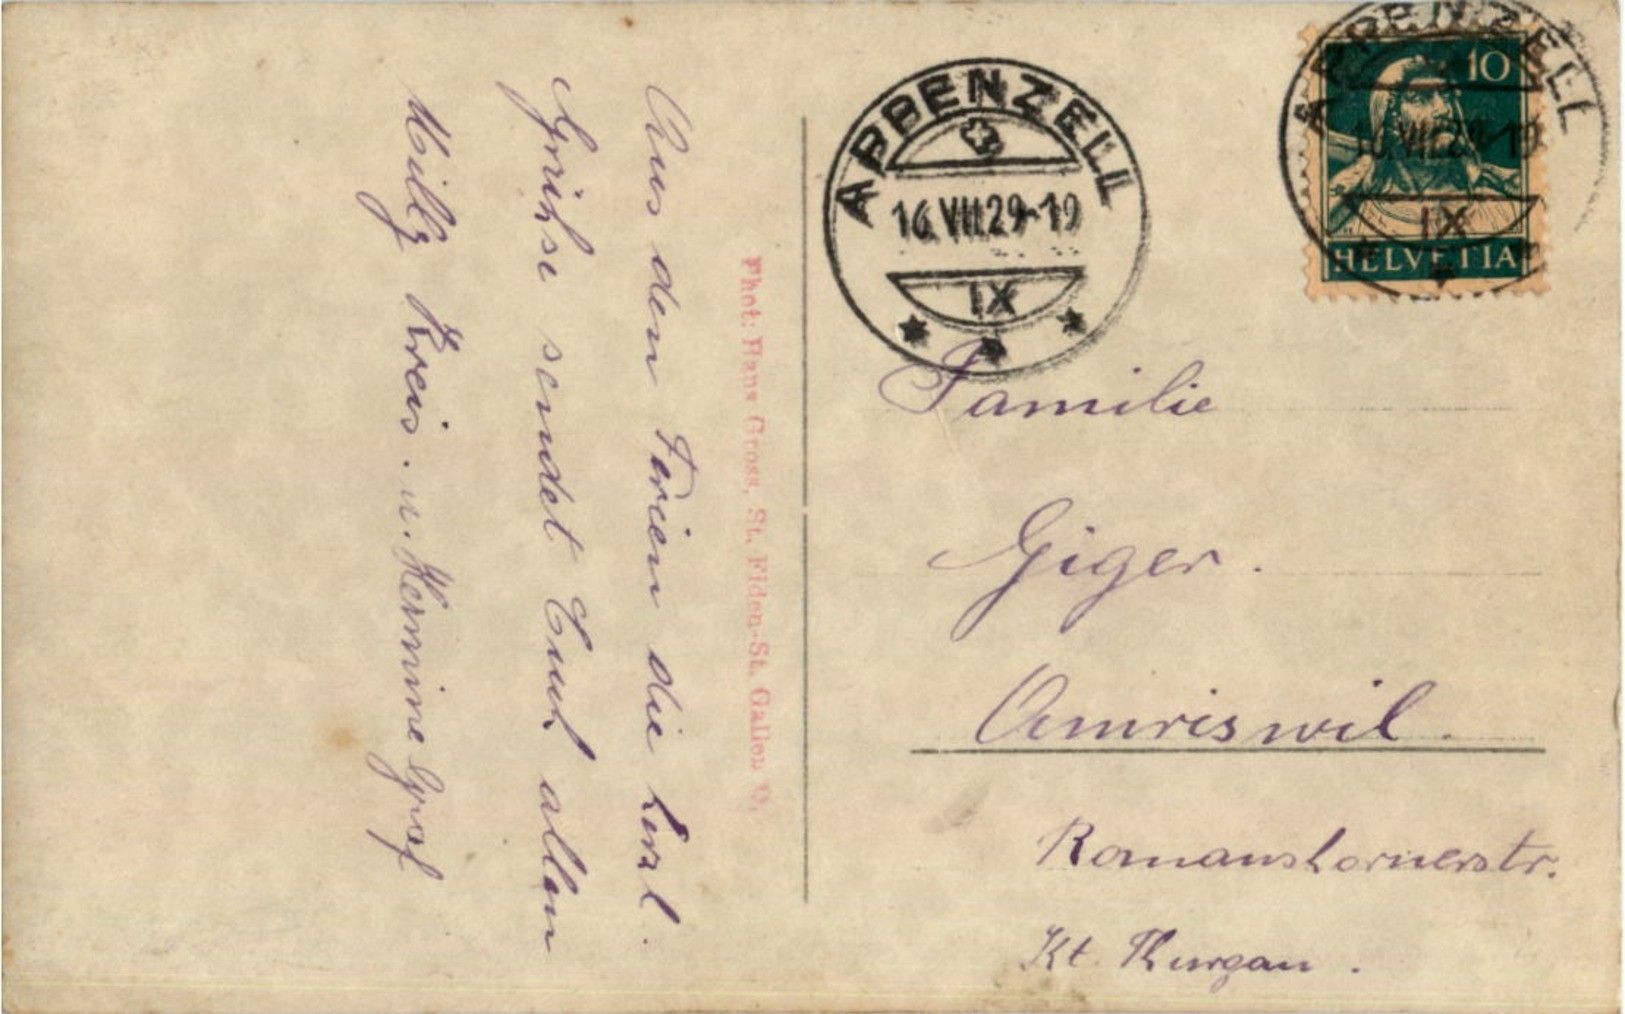 Aus den Ferien die herzl.
Grühse sendet Euch allen
Milly Kreis. u. Hermine Graf
Phot: Hans Gross, St. Fiden-St. Gallen O.
APPENZELL
16.VII.29-19
IX
APPENZELL
16.VII.29-19
IX
10
HELVETIA
Familie
Giger.
Amriswil.
Romanshornerstr.
Kt. Thurgau.